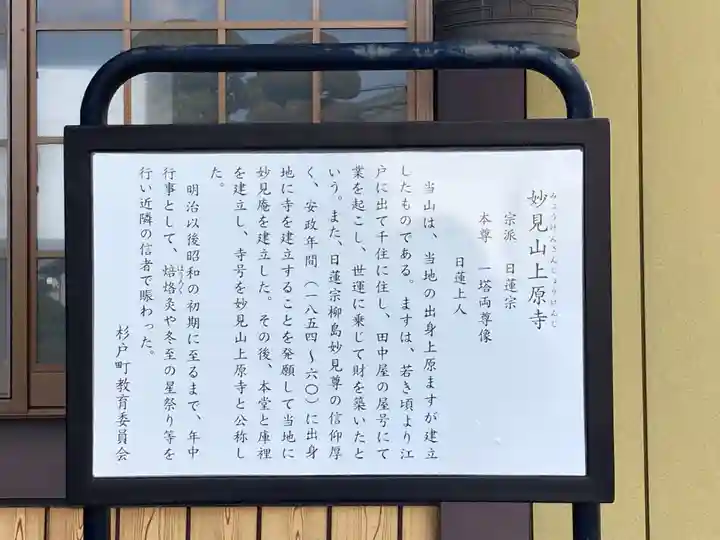 みょうけんさんじょうげんじ
妙見山上原寺
宗派　日蓮宗
本尊　一塔両尊像
日蓮上人
当山は、当地の出身上原ますが建立
したものである。ますは、若き頃より江
戸に出て千住に住し、田中屋の屋号にて
業を起こし、世運に乗じて財を築いたと
いう。また、日蓮宗柳島妙見尊の信仰厚
く、安政年間（一八五四～六〇）に出身
地に寺を建立することを発願して当地に
妙見庵を建立した。その後、本堂と庫裡
を建立し、寺号を妙見山上原寺と公称し
た。
明治以後昭和の初期に至るまで、年中
行事として、焙烙灸や冬至の星祭り等を
行い近隣の信者で賑わった。
杉戸町教育委員会